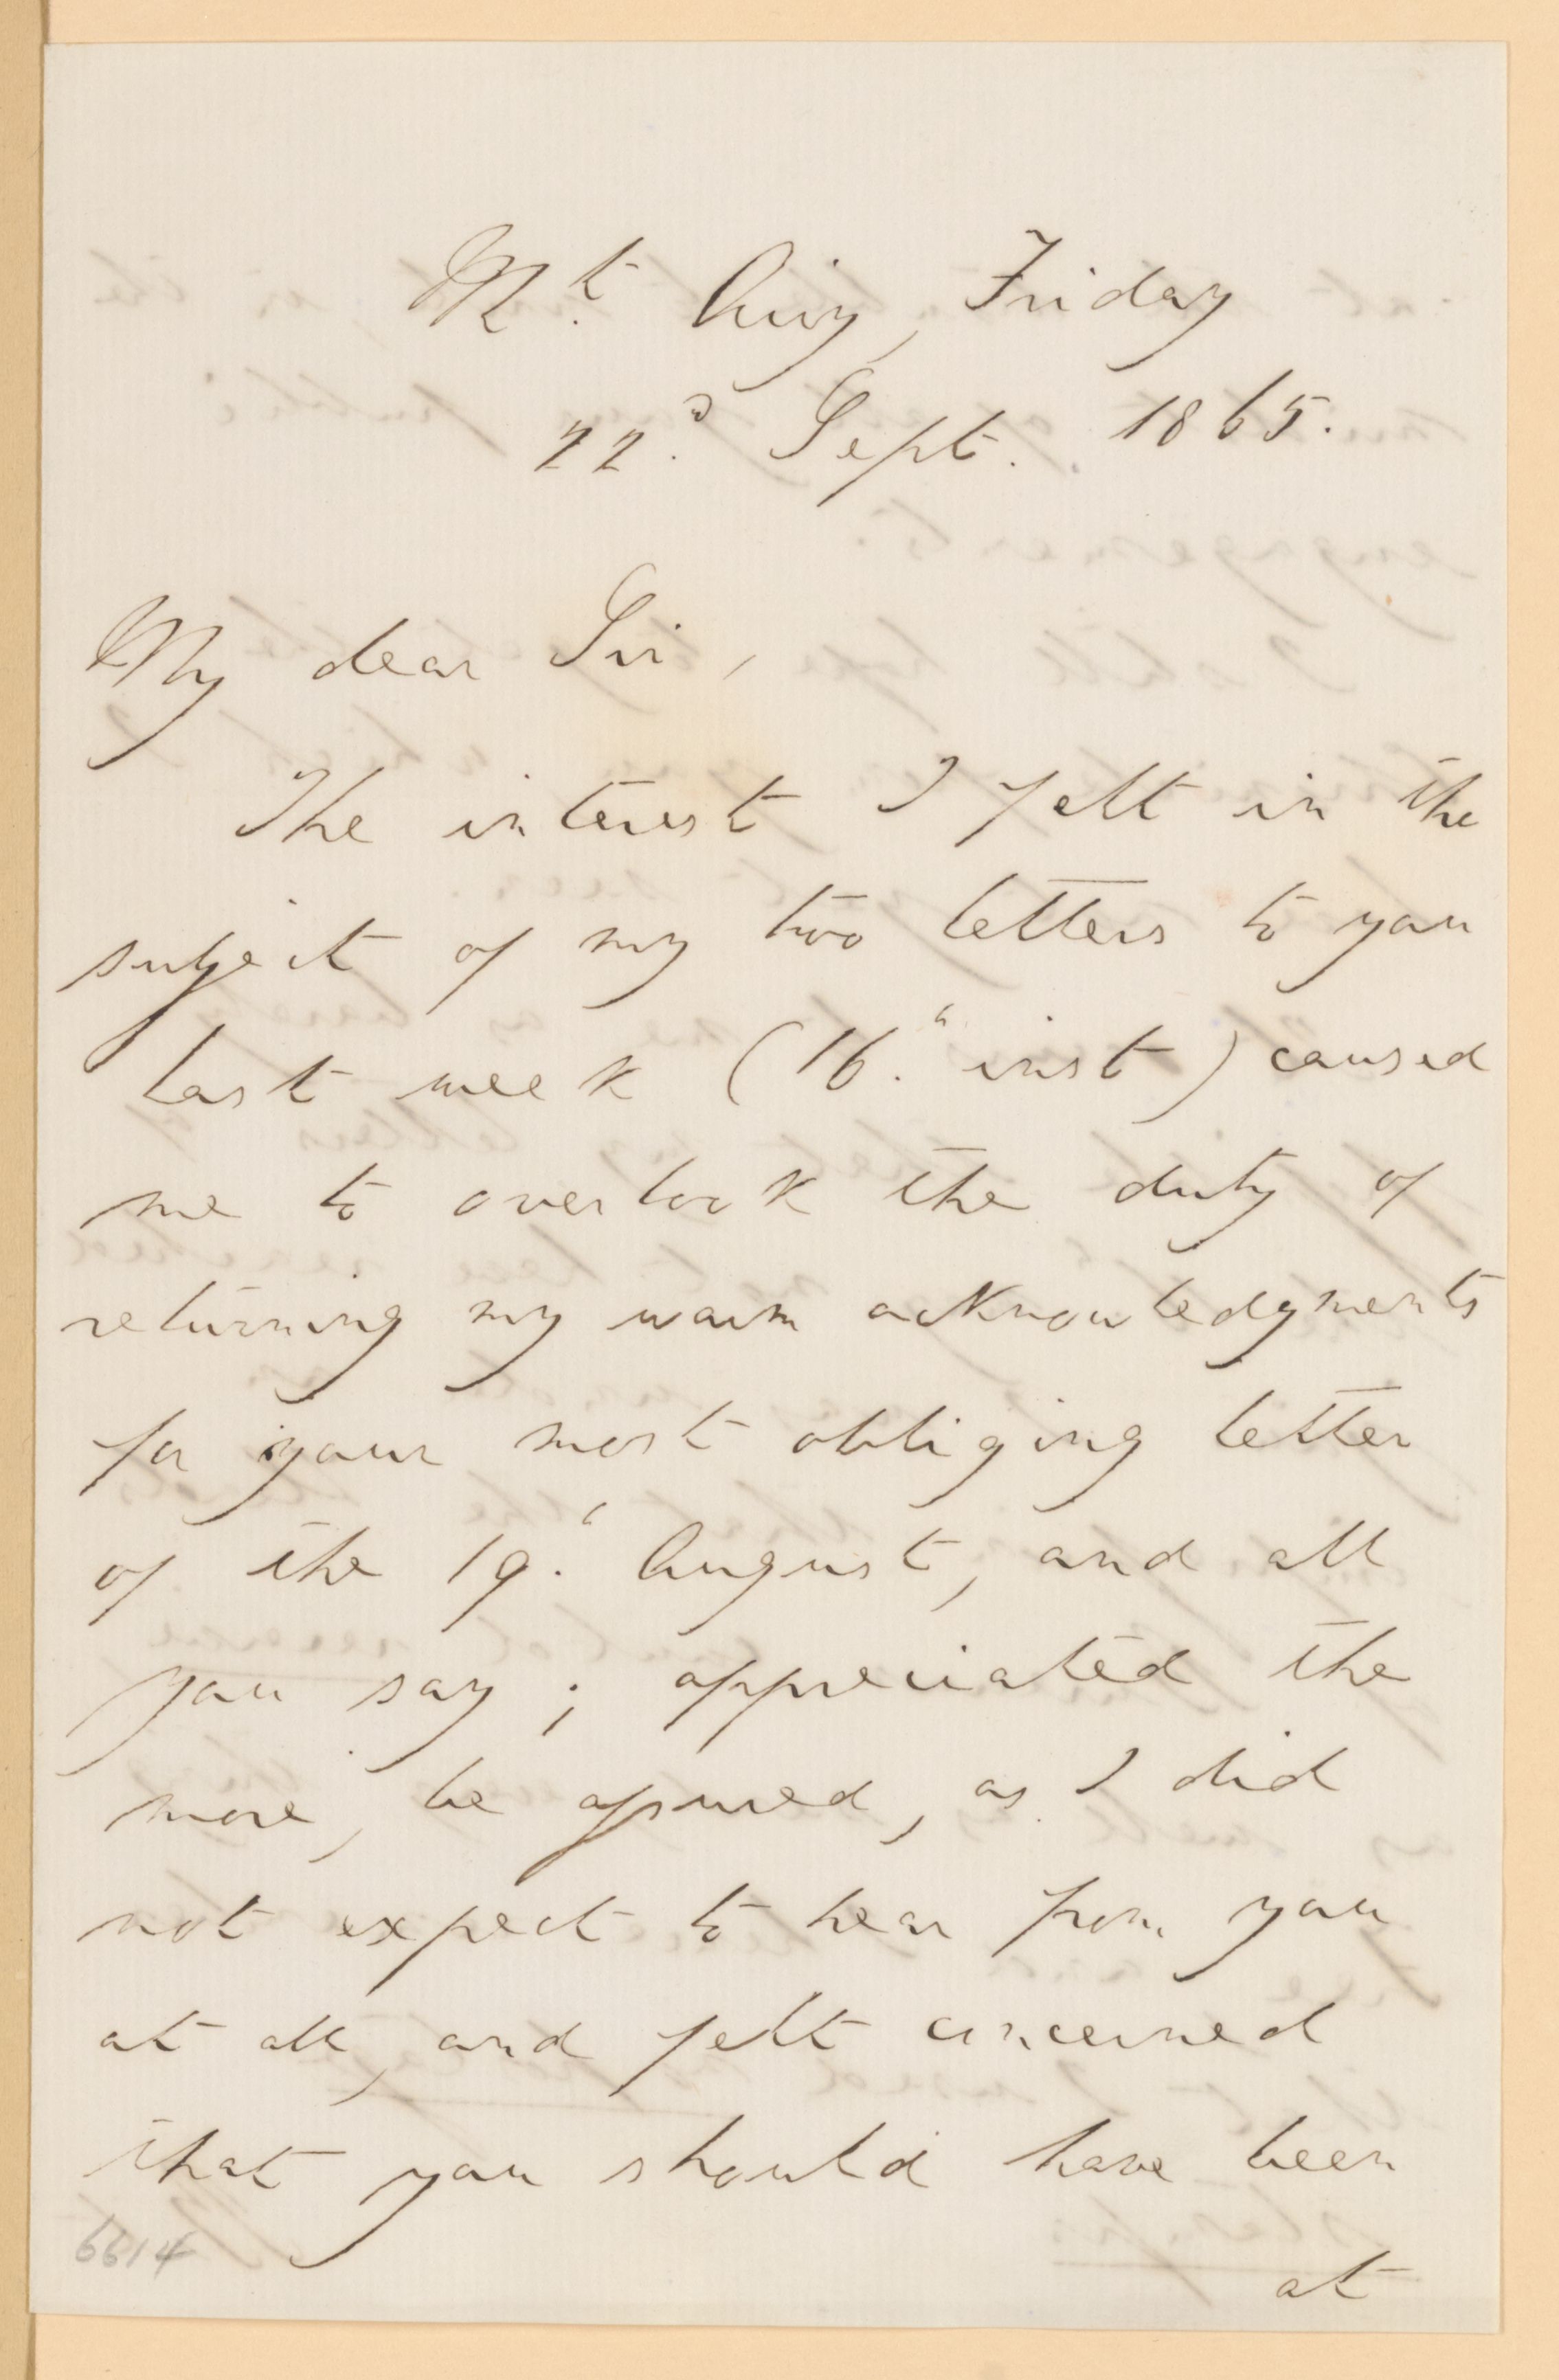 Mt. Airy, Friday
22d. Sept. 1865.
My dear Sir,
The interest I felt in the
subject of my two letters to you
last week (16." inst) caused
me to overlook the duty of
returning my warm acknowledgments
for your most obliging letter
of the 19.' August, and all
you say; appreciated the
more, be assured, as I did
not expect to hear from you
at all, and felt concerned
that you should have been
at
6614